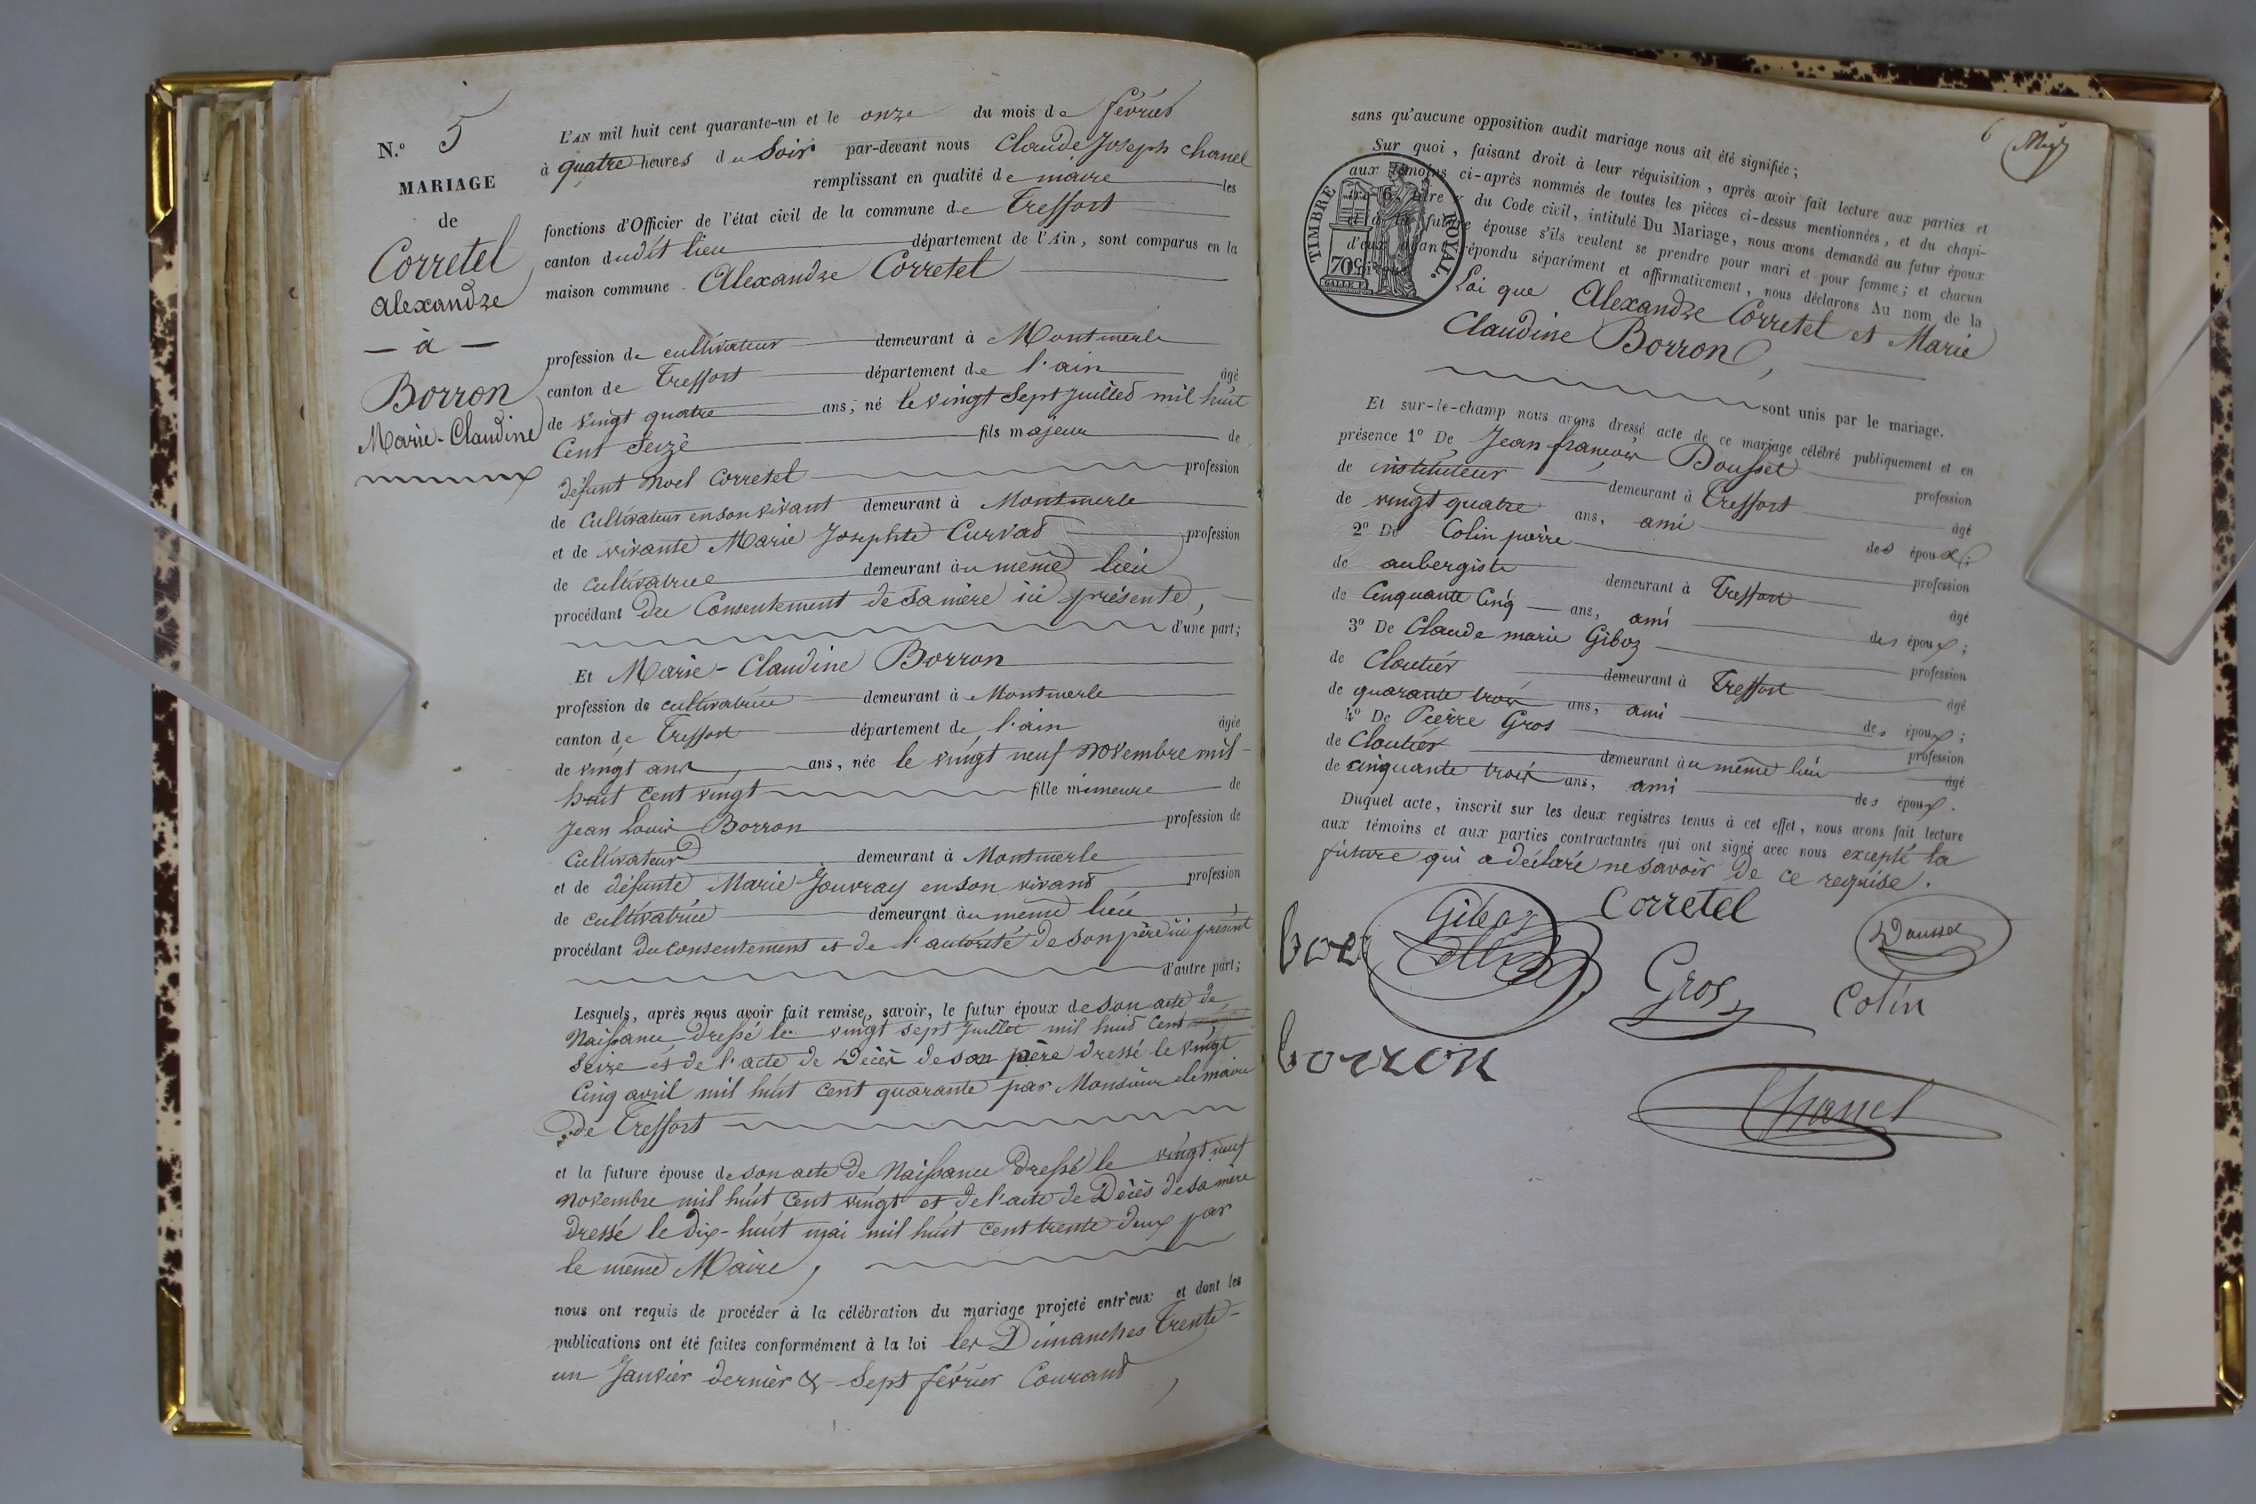 N.º 5
MARIAGE
de
Corretel
Alexandre
— à —
Borron
Marie-Claudine
L'AN mil huit cent quarante-un et le onze du mois de février
à quatre heures du Soir par-devant nous Claude Joseph Chanel
remplissant en qualité de maire les
fonctions d'Officier de l'état civil de la commune de Treffort
canton dudit lieu département de l'Ain, sont comparus en la
maison commune Alexandre Corretel
profession de cultivateur demeurant à Montmerle
canton de Treffort département de l'ain âgé
de vingt quatre ans, né le vingt Sept juillet mil huit
Cent Seize fils majeur de
défunt Noel Corretel profession
de Cultivateur en son vivant demeurant à Montmerle
et de vivante Marie Josephte Curvat profession
de cultivatrice demeurant au même lieu
procédant du Consentement de sa mère ici présente,
d'une part;
Et Marie-Claudine Borron
profession de cultivatrice demeurant à Montmerle
canton de Treffort département de l'ain âgée
de vingt ans ans, née le vingt neuf novembre mil
huit cent vingt fille mineure de
Jean Louis Borron profession de
Cultivateur demeurant à Montmerle
et de défunte Marie Gouvray en son vivant profession
de cultivatrice demeurant au même lieu
procédant du consentement et de l'autorité de son père ici présent
d'autre part;
Lesquels, après nous avoir fait remise, savoir, le futur époux de son acte de
Naissance dressé le vingt sept Juillet mil huit Cent
Seize et de l'acte de Décès de son père dressé le vingt
Cinq avril mil huit cent quarante par Monsieur le maire
de Treffort
et la future épouse de son acte de Naissance dressé le vingt neuf
novembre mil huit Cent vingt et de l'acte de Décès de sa mère
dressé le dix-huit mai mil huit cent trente deux par
le même Maire,
nous ont requis de procéder à la célébration du mariage projeté entr'eux et dont les
publications ont été faites conformément à la loi les Dimanches Trente-
un Janvier dernier & Sept février Courant
6
sans qu'aucune opposition audit mariage nous ait été signifiée;
Sur quoi, faisant droit à leur réquisition, après avoir fait lecture aux parties et
aux témoins ci-après nommés de toutes les pièces ci-dessus mentionnées, et du chapi-
tre 6, titre v du Code civil, intitulé Du Mariage, nous avons demandé au futur époux
et à la future épouse s'ils veulent se prendre pour mari et pour femme; et chacun
d'eux ayant répondu séparément et affirmativement, nous déclarons Au nom de la
Loi que Alexandre Corretel et Marie
Claudine Borron,
TIMBRE ROYAL.
70c
GALLE F.
sont unis par le mariage.
Et sur-le-champ nous avons dressé acte de ce mariage célébré publiquement et en
présence 1º De Jean françois Dousset profession
de instituteur demeurant à Treffort âgé
de vingt quatre ans, ami des époux;
2º De Colin pierre profession
de aubergiste demeurant à Treffort âgé
de Cinquante Cinq ans, ami des époux;
3º De Claude marie Giboz profession
de Cloutier demeurant à Treffort âgé
de quarante trois ans, ami des époux;
4º De Pierre Gros profession
de Cloutier demeurant au même lieu âgé
de cinquante trois ans, ami des époux.
Duquel acte, inscrit sur les deux registres tenus à cet effet, nous avons fait lecture
aux témoins et aux parties contractantes qui ont signé avec nous excepté la
future qui a déclaré ne savoir de ce requise.
Giboz Corretel Dousset
bor
Gros Colin
borron
Chanel